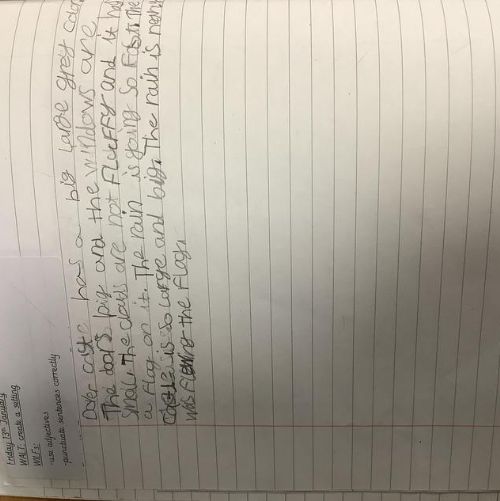 Friday 13th January
WALT: create a setting
WILFs:
-use adjectives
-punctuate sentences correctly
Dover caste has a big large grey
The is big and the windows are
small. The clouds are not FluFFy and it has
a flag on it. The rain is going so Fast. The
castle is so large and big. The rain is
was the flag.